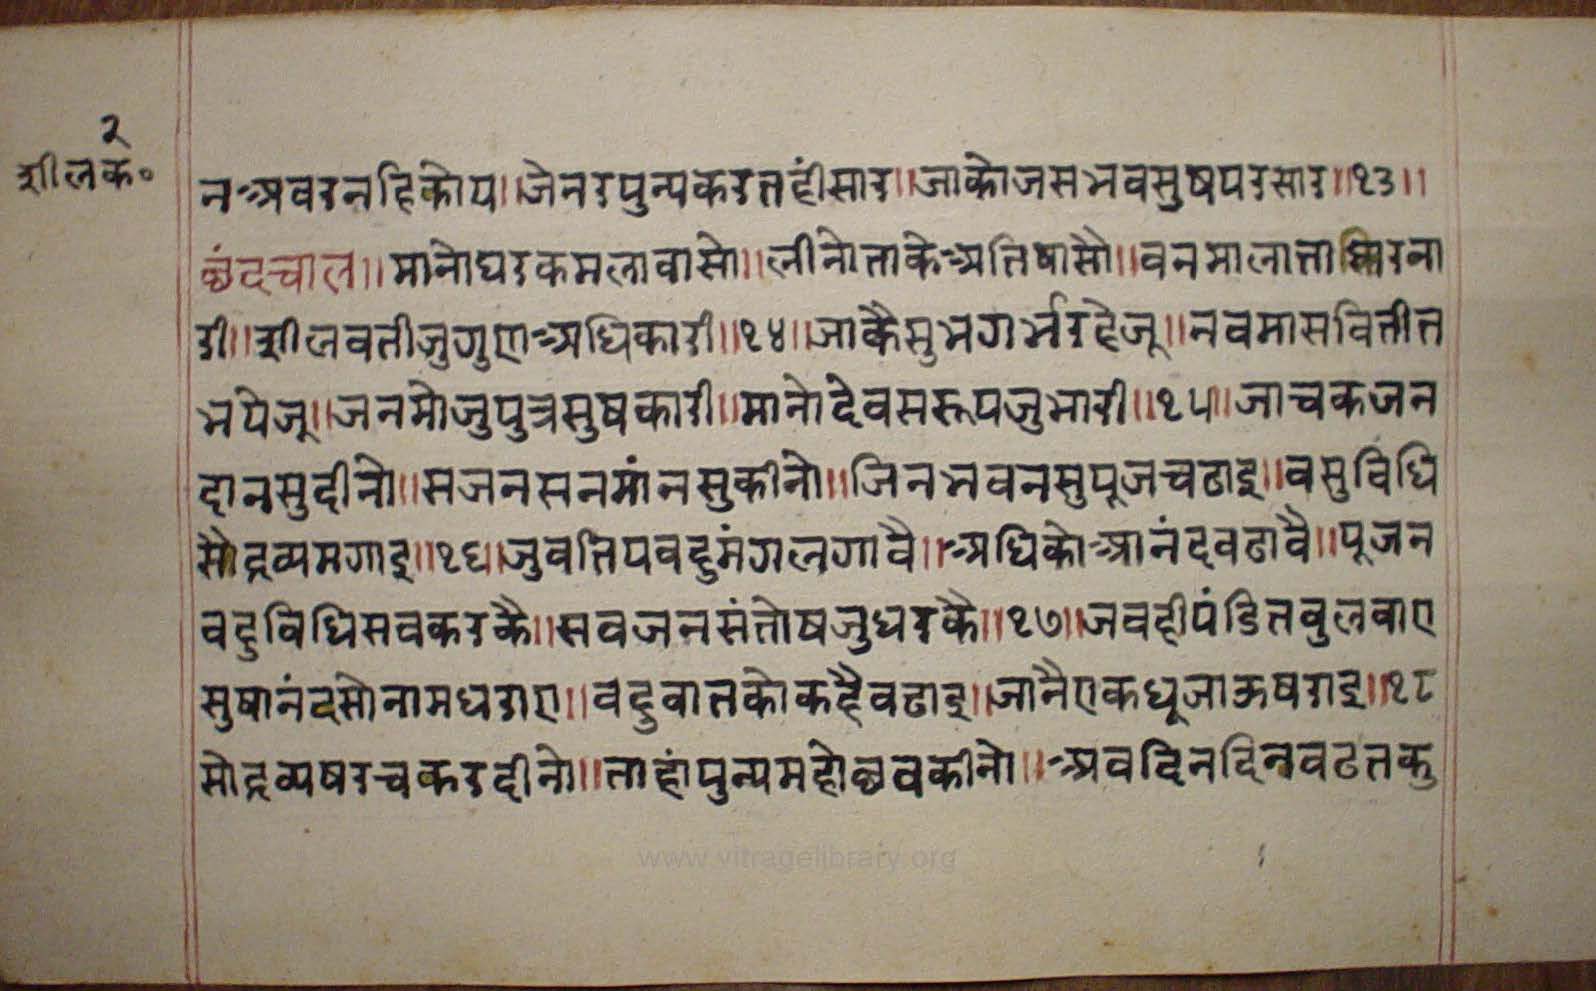 २
शीलक॰
नअवरनहिकोय॥जेनरपुन्यकरतहींसार॥जाकोजसभवसुषपरसार॥१३॥
छंदचाल॥मानोघरकमलावासो॥लीनोताकेअतिषासौ॥वनमालातानारिना
री॥शीलवतीजुगुणअधिकारी॥१४॥जाकैसुभगर्भरहेजू॥नवमासवितीत
भयेजू॥जनमोजुपुत्रसुषकारी॥मानोदेवसरूपजुभारी॥१५॥जाचकजन
दानसुदीनो॥सजनसनमांनसुकीनो॥जिनभवनसुपूजचढाइ॥वसुविधि
सौद्रव्यमगाइ॥१६॥जुवतियवहुमंगलगावै॥अधिकोआनंदवढावै॥पूजन
वहुविधिसवकरकै॥सवजनसंतोषजुधरकै॥१७॥जवहीपंडितवुलवाए
सुषानंदसोनामधराए॥वहुवातकोकहैवढाइ॥जानैएकधूजाऊषराइ॥१८
सोद्रव्यषरचकरदीनो॥ताहांपुन्यमहोछवकीनो॥अवदिनदिनवढतकु
www.vitragelibrary.org